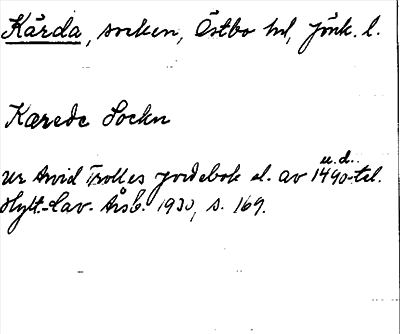 Kärda, socken, Östbo hd, Jönk. l.
Kærede Sockn
u.d.
ur Arvid Trolles jordebok sl. av 1490-tal.
Hylt.-Cav. Årsb. 1930, s. 169.